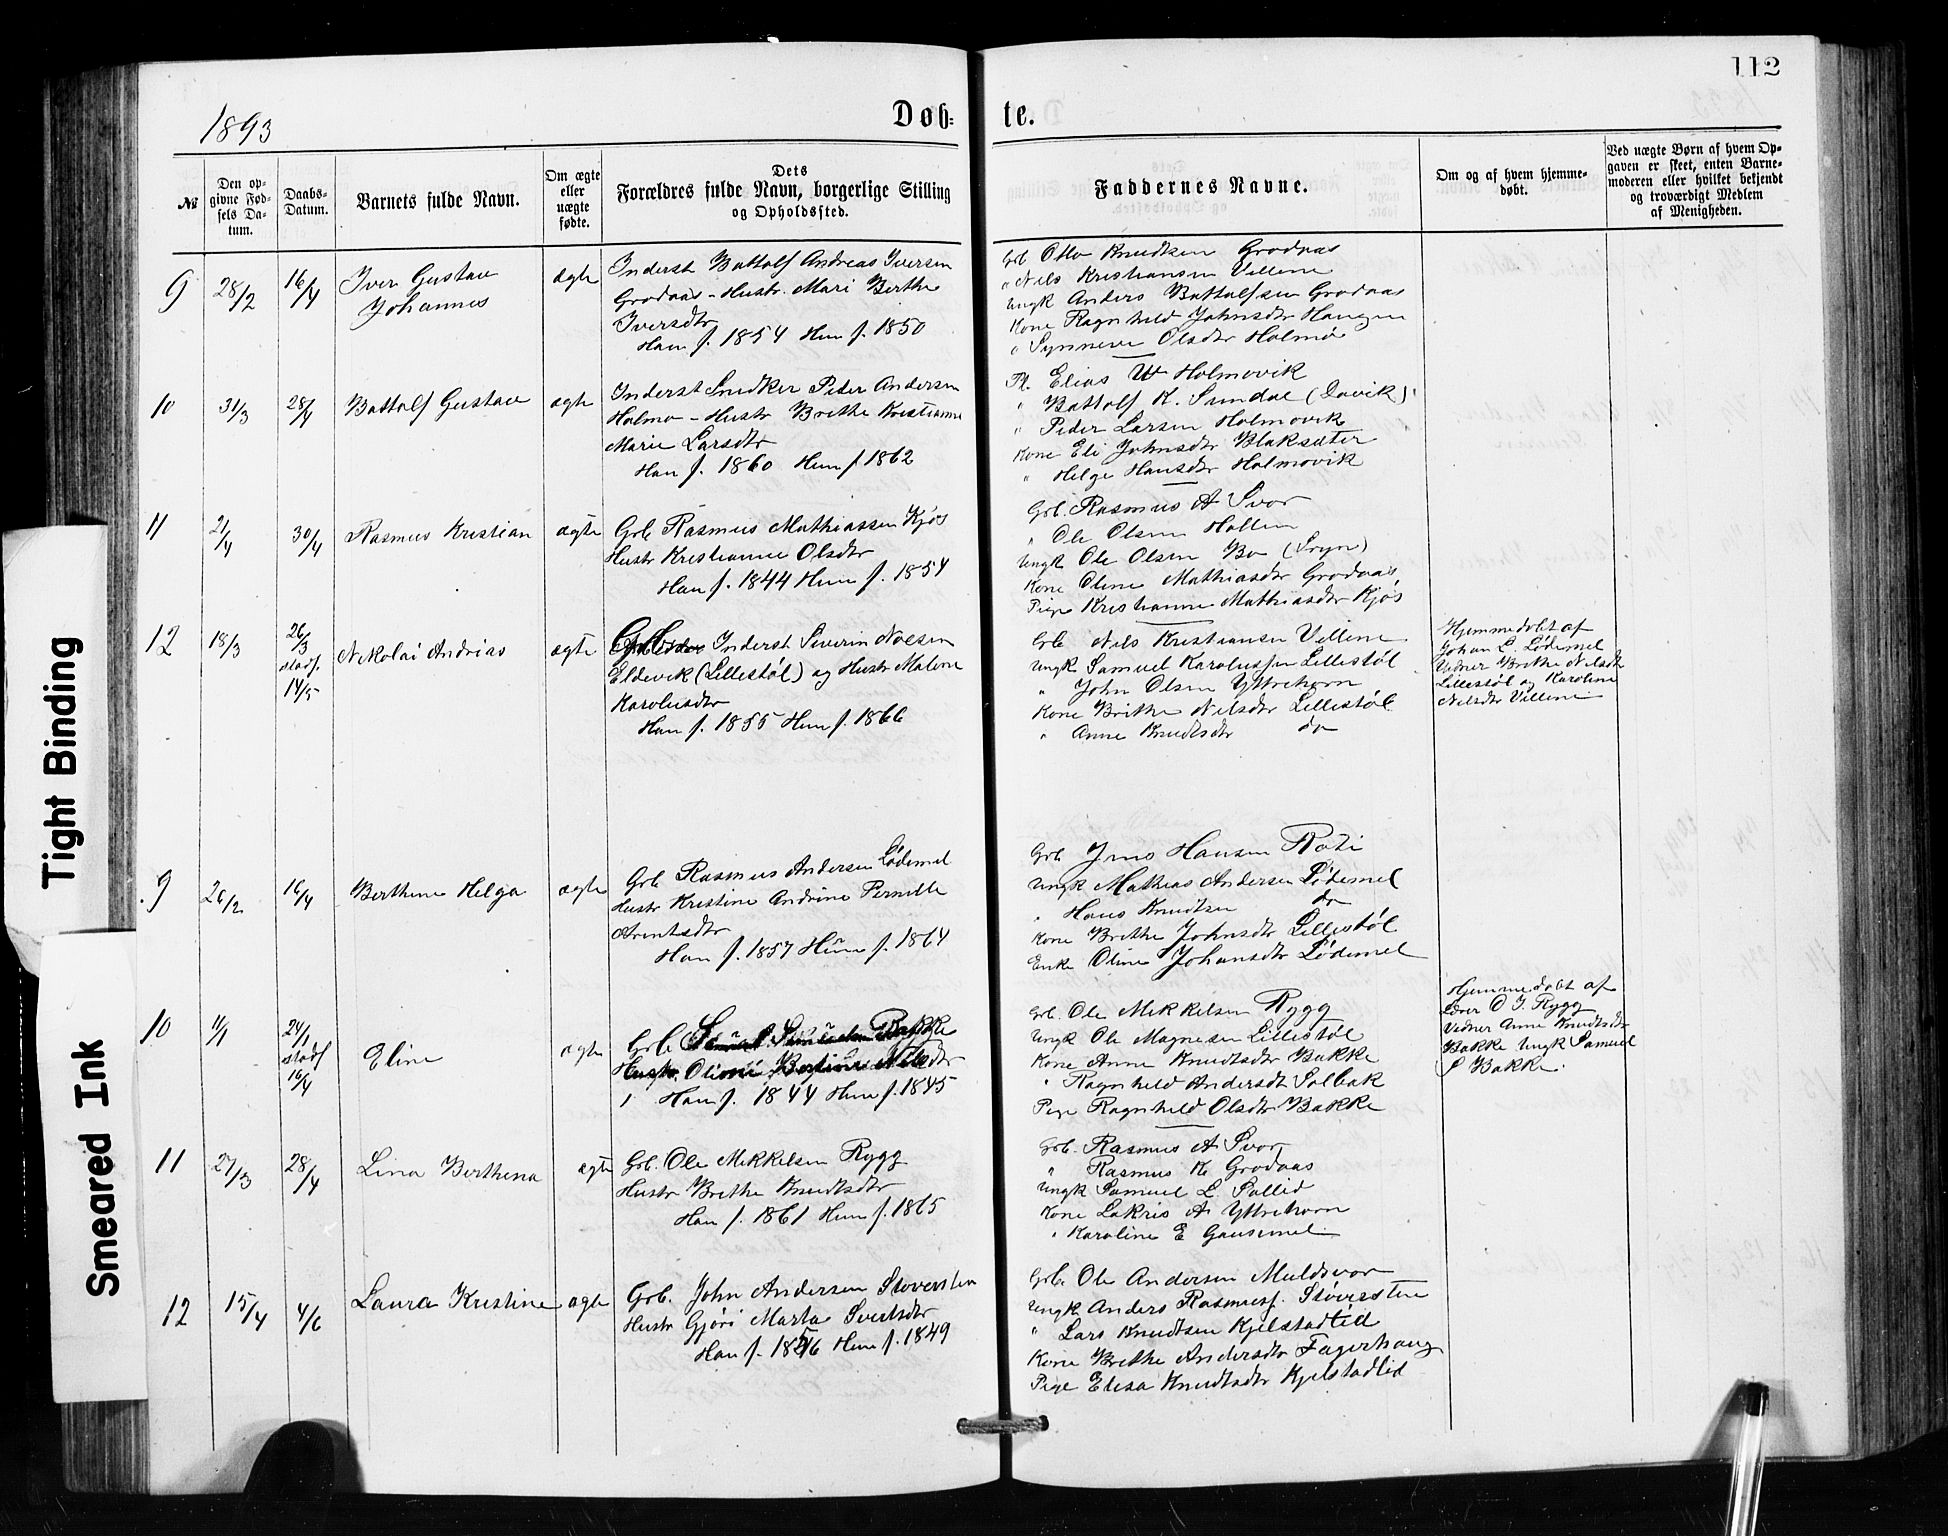 112
1893
Døb- te.
№
Den op-
givne Fød-
sels Da-
tum.
Daabs-
Datum.
Barnets fulde Navn.
Om ægte
eller
uægte
fødte.
Dets
Forældres fulde Navn, borgerlige Stilling
og Opholdssted.
Faddernes Navne.
Om og af hvem hjemme-
døbt.
Ved uægte Børn af hvem Op-
gaven er skeet, enten Barne-
moderen eller hvilket bekjendt
og troværdigt Medlem
af Menigheden.
9 28/2 16/4 Iver Gustav
Johannes
ægte
Inderst Battolf Andreas Iversen
Grodaas - Hustr. Mari Berthe
Iversdtr
Han f. 1854 Hun f. 1850
Grb Otto Knudtsen Grodaas
" Nils Kristiansen Villene
Ungk Anders Battolfsen Grodaas
Kone Ragnhild Johnsdtr Haugen
" Synneve Olsdtr Holmø
10 31/3 28/4 Battolf Gustav ægte
Inderst Snedker Peder Andersen
Holmø - Hustr Brithe Kristianne
Marie Larsdtr
Han f. 1860 Hun f 1862
Pl. Elias W Holmøvik
" Battolf K. Sundal (Davik)
" Peder Larsen Holmøvik
Kone Eli Johnsdtr Blaksæter
" Helge Hansdtr Holmøvik
11 21/4 30/4 Rasmus Kristian ægte
Grb Rasmus Mathiassen Kjøs
Hustr Kristianne Olsdtr
Han f. 1844 Hun f. 1854
Grb. Rasmus A Svor
" Ole Olsen Hallen
Ungk Ole Olsen Bø (Stryn)
Kone Oline Mathiasdtr Grodaas
Pige Kristianne Mathiasdtr Kjøs
12 18/3 26/3
stadf.
14/5
Nikolai Andrias ægte
Inderst Severin Noesen
Eldevik (Lillestøl) og Hustr Malene
Karolusdtr
Han f. 1855 Hun f. 1866
Grb Nils Kristiansen Villene
Ungk Samuel Karolussen Lillestøl
" John Olsen Yttrehorn
Kone Brithe Nilsdtr Lillestøl
" Anne Knudtsdtr do
Hjemmedøbt af
Johan L. Lødemel
Vidner Brithe Nilsdtr
Lillestøl og Karoline
Nilsdtr Villene
9 26/2 16/4 Berthine Helga ægte
Grb Rasmus Andersen Lødemel
Hustr Kristine Andrine Pernille
Arentsdtr
Han f. 1857 Hun f. 1864
Grb Jens Hansen Roti
Ungk Mathias Andersen Lødemel
" Hans Knudtsen do
Kone Brithe Johnsdtr Lillestøl
Enke Oline Johansdtr Lødemel
10 11/1 24/1
stadf
16/4
Eline ægte
Grb Bakke
Hustr. Nilsdtr
Han f. 1844 Hun f. 1845
Grb. Ole Mikkelsen Rygg
Ungk Ole Magnesen Lillestøl
Kone Anne Knudtsdtr Bakke
" Ragnhild Andersdt Solbak
Pige Ragnhild Olsdtr Bakke
Hjemmedøbt af
Lærer O I. Rygg
Vidner Anne Knudtsdtr
Bakke Ungk Samuel
S Bakke.
11 27/3 28/4 Lina Berthena ægte
Grb. Ole Mikkelsen Rygg
Hustr Brithe Knudtsdtr
Han f. 1861 Hun f. 1865
Grb. Rasmus A Svor
" Rasmus K Grodaas
Ungk Samuel L. Sallid
Kone Lakris A Yttrehorn
" Karoline E Gausemel
12 15/4 4/6 Laura Kristine ægte
Grb. John Andersen Støversten
Hustr Gjøri Marta Sivertsdtr
Han f. 1856 Hun f. 1849
Grb. Ole Andersen Muldsvor
Ungk Anders Rasmusf. Støversten
" Lars Knudtsen Kjelstadlid
Kone Brithe Andersdtr Fagerhaug
Pige Elisa Knudtsdtr Kjelstadlid
Tight Binding
Smeared Ink